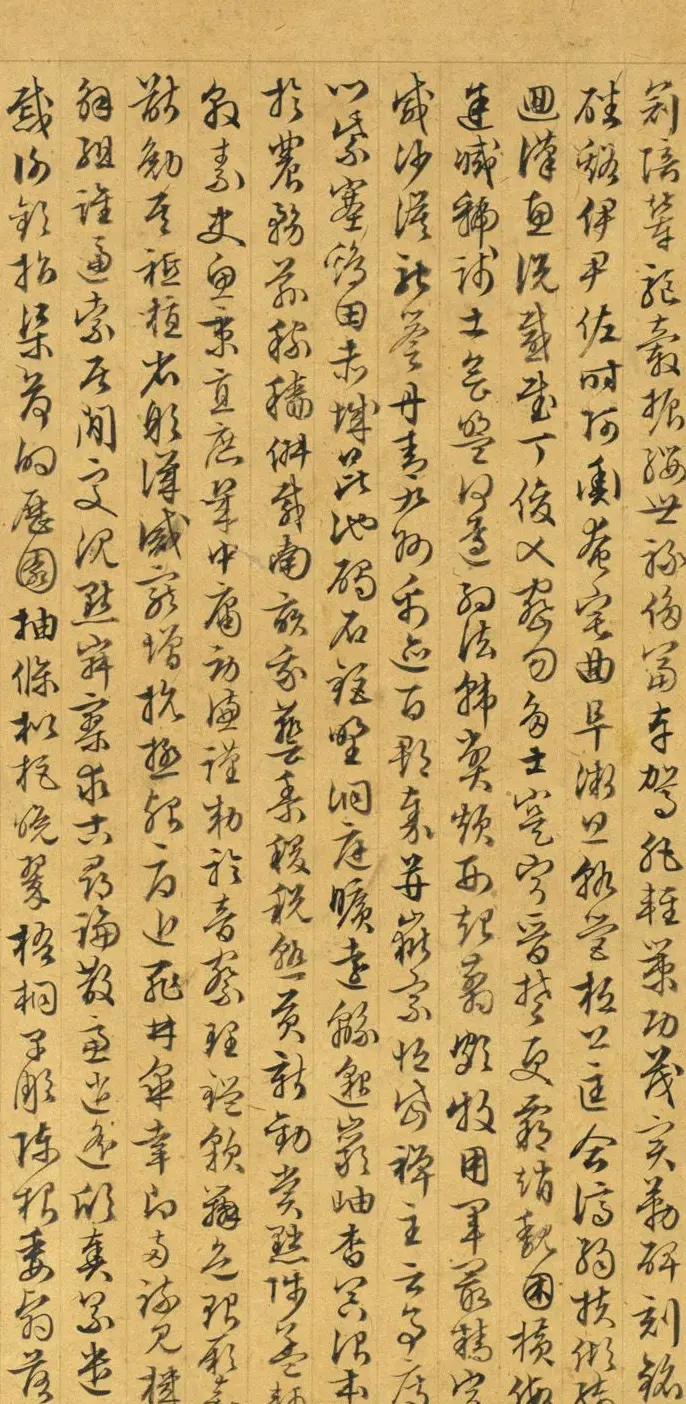 冠陪輦驅轂振纓世祿侈富車駕肥輕策功茂實勒碑刻銘
磻谿伊尹佐時阿衡奄宅曲阜微旦孰營桓公匡合濟弱扶傾綺
迴漢惠說感武丁俊乂密勿多士寔寧晉楚更霸趙魏困橫假
途滅虢踐土會盟何遵約法韓弊煩刑起翦頗牧用軍最精宣
威沙漠馳譽丹青九州禹迹百郡秦并嶽宗恒岱禪主云亭雁
門紫塞雞田赤城昆池碣石鉅野洞庭曠遠緜邈巖岫杳冥治本
於農務茲稼穡俶載南畝我藝黍稷稅熟貢新勸賞黜陟孟軻
敦素史魚秉直庶幾中庸勞謙謹敕聆音察理鑑貌辨色貽厥嘉
猷勉其祗植省躬譏誡寵增抗極殆辱近恥林皋幸即兩疏見機
解組誰逼索居閒處沉默寂寥求古尋論散慮逍遙欣奏累遣
慼謝歡招渠荷的歷園抽條枇杷晚翠梧桐早彫陳根委翳落